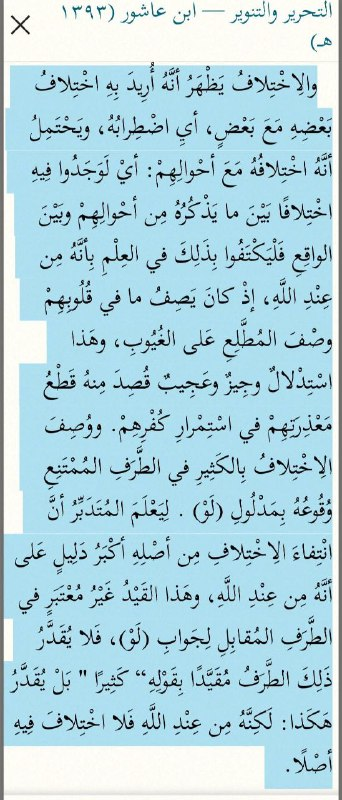 التحرير والتنوير — ابن عاشور (١٣٩٣
هـ)
والِاخْتِلافُ يَظْهَرُ أنَّهُ أُرِيدَ بِهِ اخْتِلافُ
بَعْضِهِ مَعَ بَعْضٍ، أيِ اضْطِرابُهُ، ويَحْتَمِلُ
أنَّهُ اخْتِلافُهُ مَعَ أحْوالِهِمْ: أيْ لَوَجَدُوا فِيهِ
اخْتِلافًا بَيْنَ ما يَذْكُرُهُ مِن أحْوالِهِمْ وبَيْنَ
الواقِعِ فَلْيَكْتَفُوا بِذَلِكَ في العِلْمِ بِأنَّهُ مِن
عِنْدِ اللَّهِ، إذْ كانَ يَصِفُ ما في قُلُوبِهِمْ
وصْفَ المُطَّلِعِ عَلى الغُيُوبِ، وهَذا
اسْتِدْلالٌ وجِيزٌ وعَجِيبٌ قُصِدَ مِنهُ قَطْعُ
مَعْذِرَتِهِمْ في اسْتِمْرارِ كُفْرِهِمْ. ووُصِفَ
الِاخْتِلافُ بِالكَثِيرِ في الطَّرَفِ المُمْتَنِعِ
وُقُوعُهُ بِمَدْلُولِ (لَوْ) . لِيَعْلَمَ المُتَدَبِّرُ أنَّ
انْتِفاءَ الِاخْتِلافِ مِن أصْلِهِ أكْبَرُ دَلِيلٍ عَلى
أنَّهُ مِن عِنْدِ اللَّهِ، وهَذا القَيْدُ غَيْرُ مُعْتَبَرٍ في
الطَّرَفِ المُقابِلِ لِجَوابِ (لَوْ)، فَلا يُقَدَّرُ
ذَلِكَ الطَّرَفُ مُقَيَّدًا بِقَوْلِهِ“ كَثِيرًا " بَلْ يُقَدَّرُ
هَكَذا: لَكِنَّهُ مِن عِنْدِ اللَّهِ فَلا اخْتِلافَ فِيهِ
أصْلًا.